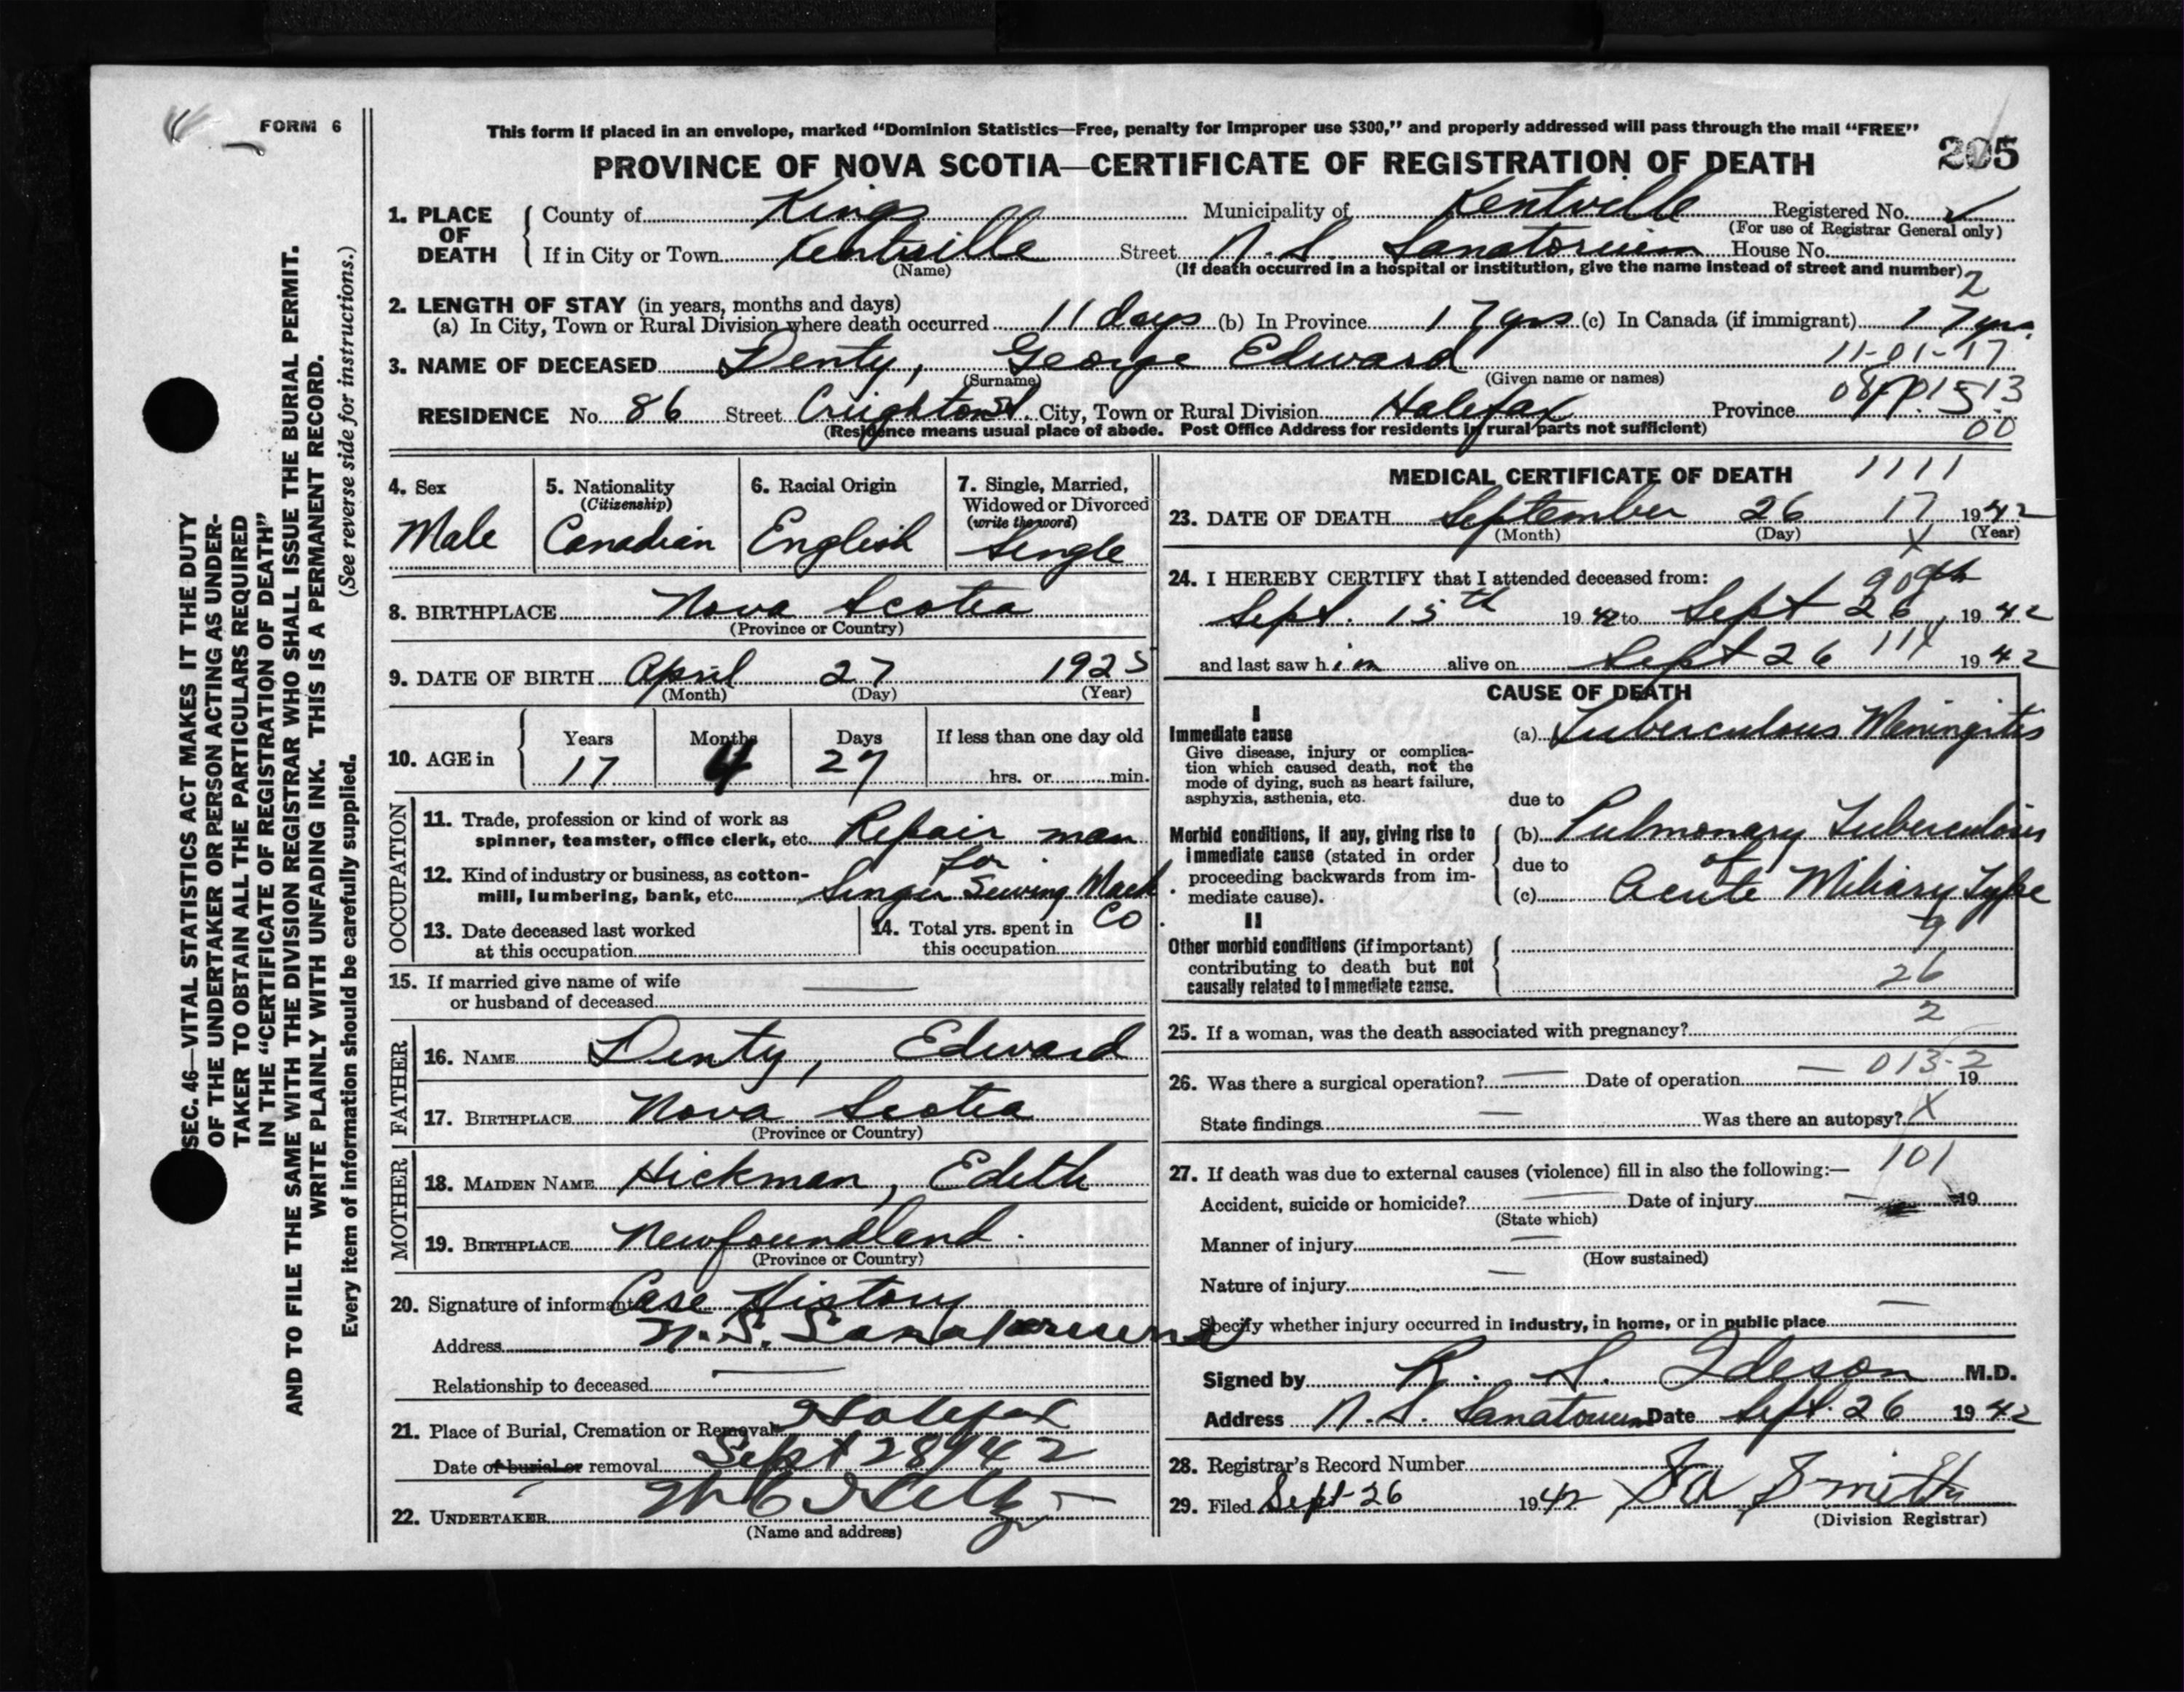 FORM 6
This form if placed in an envelope, marked "Dominion Statistics—Free, penalty for improper use $300," and properly addressed will pass through the mail "FREE"
PROVINCE OF NOVA SCOTIA—CERTIFICATE OF REGISTRATION OF DEATH
205
1. PLACE OF DEATH
County of Kings Municipality of Kentville Registered No.
(For use of Registrar General only)
If in City or Town Kentville Street N. S. Sanatorium House No.
(Name) (If death occurred in a hospital or institution, give the name instead of street and number)
2
2. LENGTH OF STAY (in years, months and days)
(a) In City, Town or Rural Division where death occurred 11 days (b) In Province 17 yrs (c) In Canada (if immigrant) 17 yrs.
3. NAME OF DECEASED Denty, George Edward 11-01-17
(Surname) (Given name or names)
RESIDENCE No. 86 Street Creighton St. City, Town or Rural Division Halifax Province
(Residence means usual place of abode. Post Office Address for residents in rural parts not sufficient)
00
4. Sex
Male
5. Nationality
(Citizenship)
Canadian
6. Racial Origin
English
7. Single, Married,
Widowed or Divorced
(write the word)
Single
8. BIRTHPLACE Nova Scotia
(Province or Country)
9. DATE OF BIRTH April 27 1925
(Month) (Day) (Year)
10. AGE in
Years Months Days If less than one day old
17 4 27 hrs. or min.
OCCUPATION
11. Trade, profession or kind of work as
spinner, teamster, office clerk, etc. Repair man
for
12. Kind of industry or business, as cotton-
mill, lumbering, bank, etc. Singer Sewing Mach
Co.
13. Date deceased last worked
at this occupation
14. Total yrs. spent in
this occupation
15. If married give name of wife
or husband of deceased
FATHER
16. NAME Denty, Edward
17. BIRTHPLACE Nova Scotia
(Province or Country)
MOTHER
18. MAIDEN NAME Hickman, Edith
19. BIRTHPLACE Newfoundland.
(Province or Country)
20. Signature of informant Case History
Address N. S. Sanatorium
Relationship to deceased
21. Place of Burial, Cremation or Removal Halifax
Date of burial or removal Sept 28 1942
22. UNDERTAKER
(Name and address)
MEDICAL CERTIFICATE OF DEATH 1111
23. DATE OF DEATH September 26 17 1942
(Month) (Day) (Year)
X
24. I HEREBY CERTIFY that I attended deceased from:
Sept. 15th 1942 to Sept 26, 1942
and last saw him alive on Sept 26 11X 1942
CAUSE OF DEATH
I
Immediate cause
Give disease, injury or complica-
tion which caused death, not the
mode of dying, such as heart failure,
asphyxia, asthenia, etc.
(a) Tuberculous Meningitis
due to
Morbid conditions, if any, giving rise to
immediate cause (stated in order
proceeding backwards from im-
mediate cause).
(b) Pulmonary Tuberculosis
due to of
(c) Acute Miliary Type
II
9
Other morbid conditions (if important)
contributing to death but not
causally related to immediate cause.
26
2
25. If a woman, was the death associated with pregnancy?
013-2
26. Was there a surgical operation? — Date of operation — 19
State findings — Was there an autopsy? X
27. If death was due to external causes (violence) fill in also the following:— 101
Accident, suicide or homicide? — Date of injury — 19
(State which)
Manner of injury —
(How sustained)
Nature of injury —
Specify whether injury occurred in industry, in home, or in public place —
Signed by R. S. Ideson M.D.
Address N. S. Sanatorium Date Sept. 26 1942
28. Registrar's Record Number
29. Filed Sept 26 1942 Smith
(Division Registrar)
SEC. 46—VITAL STATISTICS ACT MAKES IT THE DUTY
OF THE UNDERTAKER OR PERSON ACTING AS UNDER-
TAKER TO OBTAIN ALL THE PARTICULARS REQUIRED
IN THE "CERTIFICATE OF REGISTRATION OF DEATH"
AND TO FILE THE SAME WITH THE DIVISION REGISTRAR WHO SHALL ISSUE THE BURIAL PERMIT.
WRITE PLAINLY WITH UNFADING INK. THIS IS A PERMANENT RECORD.
Every item of information should be carefully supplied. (See reverse side for instructions.)